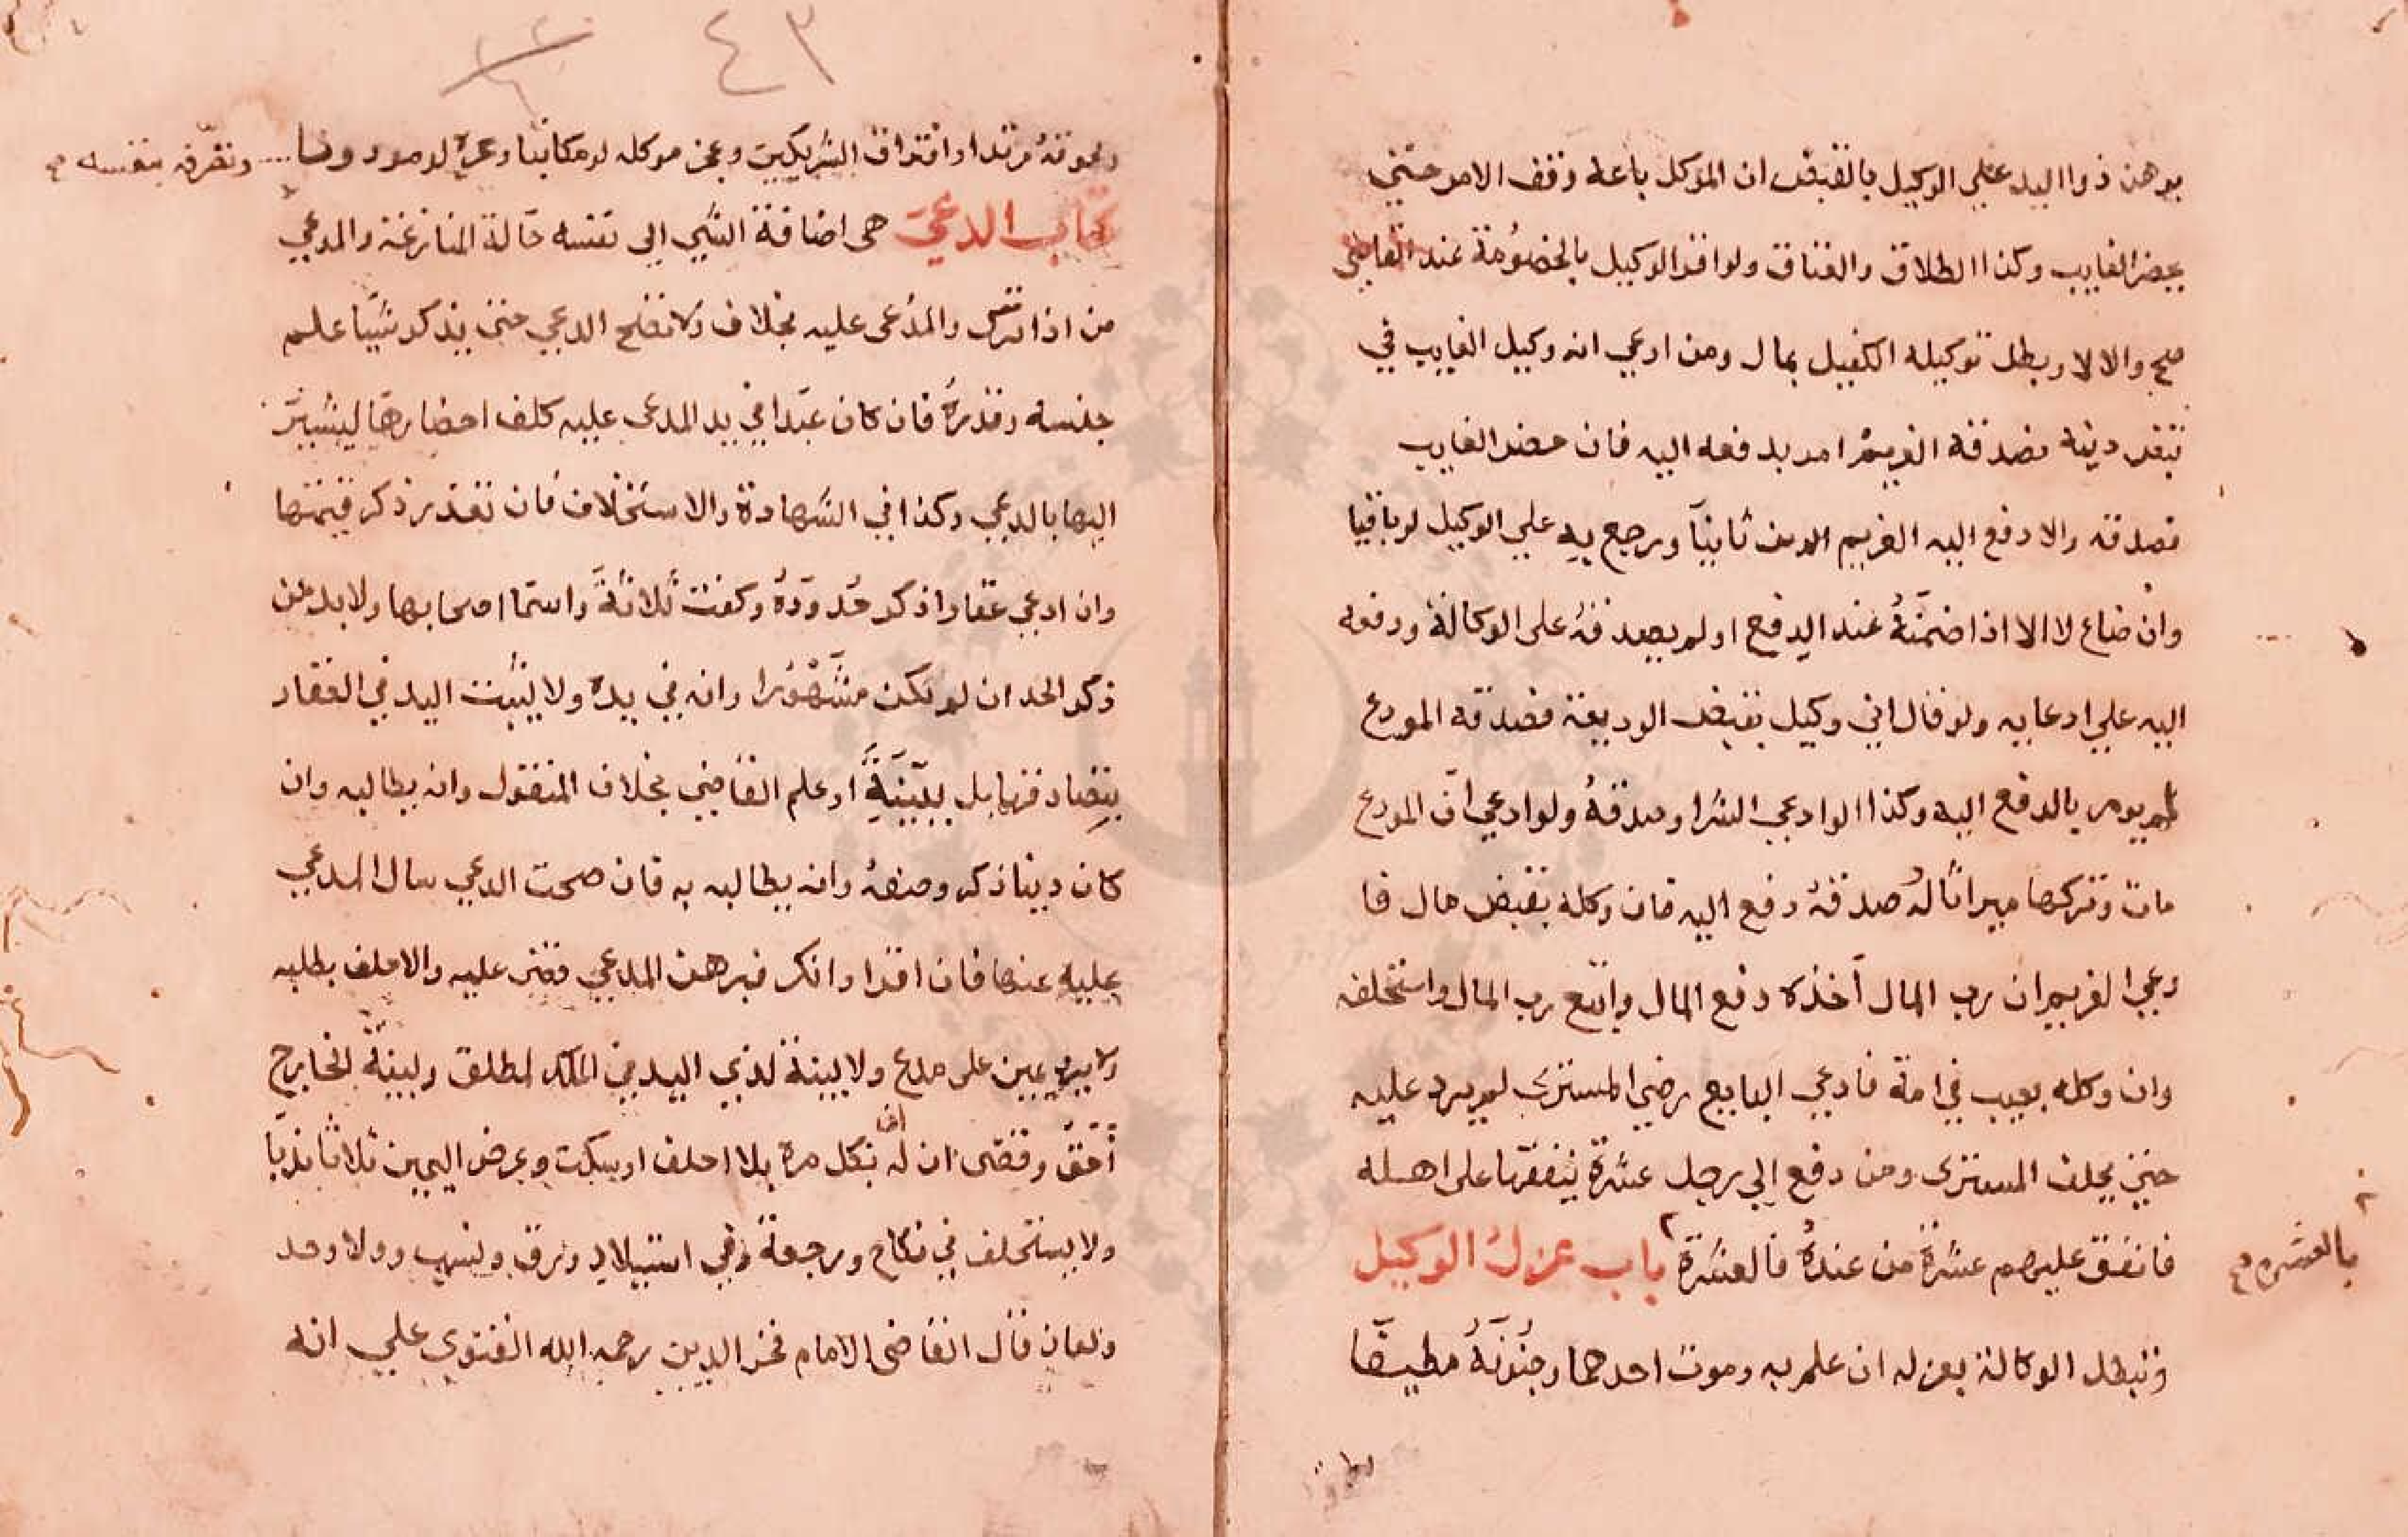 برهن ذوا اليد علي الوكيل بالقبض ان الموكل باعه وقف الامر حتي
يحضر الغايب وكذا الطلاق والعتاق ولو اقر الوكيل بالخصومة عند القاضي
صح والا لا وبطل توكيله الكفيل بمال ومن ادعي انه وكيل الغايب في
قبض دينه فصدقه الغريم امر بدفعه اليه فان حضر الغايب
فصدقه والا دفع اليه الغريم الدين ثانيا ورجع به علي الوكيل لو باقيا
وان ضاع لا الا اذا ضمنه عند الدفع او لم يصدقه على الوكالة ودفعه
اليه علي ادعايه ولو قال اني وكيل بقبض الوديعة فصدقه المودع
لم يومر بالدفع اليه وكذا لو ادعي الشرا وصدقه ولو ادعي ان المودع
مات وتركها ميراثا له وصدقه دفع اليه فان وكله بقبض مال فا
دعي الغريم ان رب المال اخذه دفع المال واتبع رب المال واستحلفه
وان وكله بعيب في امة فادعي البايع رضي المشتري لم يرد عليه
حتي يحلف المشتري ومن دفع الي رجل عشرة ينفقها على اهله
فانفق عليهم عشرة من عنده فالعشرة باب عزل الوكيل
بالعشرة صح
وتبطل الوكالة بعزله ان علم به وموت احدهما وجنونه مطبقا
٤٣
ولحوقه مرتدا وافتراق الشريكين وعجز موكله لو مكاتبا وحجره لو موذونا وتصرفه بنفسه صح
كتاب الدعوي هي اضافة الشي الى نفسه حالة المنازعة والمدعي
من اذا ترك ترك والمدعى عليه بخلاف ولا تصح الدعوي حتى يذكر شيا علم
جنسه وقدره فان كان عبدا في يد المدعي عليه كلف احضارها ليشير
اليها بالدعوي وكذا في الشهادة والاستحلاف فان تعذر ذكر قيمتها
وان ادعي عقارا ذكر حدوده وكفت ثلاثة واسما اصحابها ولا بد من
ذكر الجد ان لم يكن مشهورا وانه في يده ولا يثبت اليد في العقار
بتصادقهما بل ببينة او علم القاضي بخلاف المنقول وانه يطالبه وان
كان دينا ذكر وصفه وانه يطالبه به فان صحت الدعوي سال المدعي
عليه عنها فان اقر او انكر فبرهن المدعي قضى عليه والا حلف بطلبه
ولا يرد يمين على مدع ولا بينة لذي اليد في الملك المطلق وبينة الخارج
احق وقضى ان له نكل مرة بلا احلف او سكت وعرض اليمين ثلاثا ندبا
ولا يستحلف في نكاح ورجعة وفي استيلاد ورق ونسب وولا وحد
ولعان قال القاضى الامام فخر الدين رحمه الله الفتوي علي انه